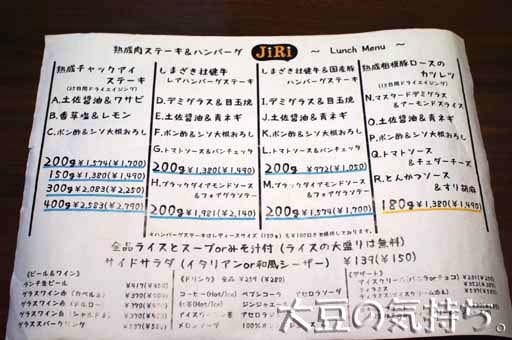 熟成肉ステーキ&ハンバーグ JiRi ～ Lunch Menu ～
熟成チャックアイステーキ
A.土佐醤油&ワサビ
B.香草塩&レモン
C.ポン酢&シソ大根おろし
200g ¥1,574(¥1,700)
150g ¥1,380(¥1,490)
300g ¥2,083(¥2,250)
400g ¥2,583(¥2,790)
しまざき牡蠣牛
レアハンバーグステーキ
D.デミグラス&目玉焼
E.土佐醤油&青ネギ
F.ポン酢&シソ大根おろし
G.トマトソース&バンチェッタ
200g ¥1,380(¥1,490)
H.ブラックダイアモンドソース
&フォアグラソテー
200g ¥1,981(¥2,140)
しまざき牡蠣牛&国産豚
ハンバーグステーキ
I.デミグラス&目玉焼
J.土佐醤油&青ネギ
K.ポン酢&シソ大根おろし
L.トマトソース&バンチェッタ
200g ¥972(¥1,050)
M.ブラックダイアモンドソース
&フォアグラソテー
200g ¥1,574(¥1,700)
熟成相模豚ロースの
カツレツ
N.マスタードデミグラス
&アーモンドスライス
O.土佐醤油&青ネギ
P.ポン酢&シソ大根おろし
Q.トマトソース
&チェダーチーズ
R.とんかつソース
&すり胡麻
180g ¥1,380(¥1,490)
全品ライスとスープorみそ汁付(ライスの大盛りは無料)
サイドサラダ(イタリアンor和風シーザー) ¥139(¥150)
《ビール&ワイン》
ランチ生ビール
グラスワイン白
グラスワイン赤
グラススパークリング
《ドリンク》全品
コーヒー(Hot/Ice)
紅茶(Hot/Ice)
メロンソーダ
ペプシコーラ
ジンジャエール
アセロラソーダ
《デザート》
アイスクリーム(バニラorチョコ)
大豆の気持ち。